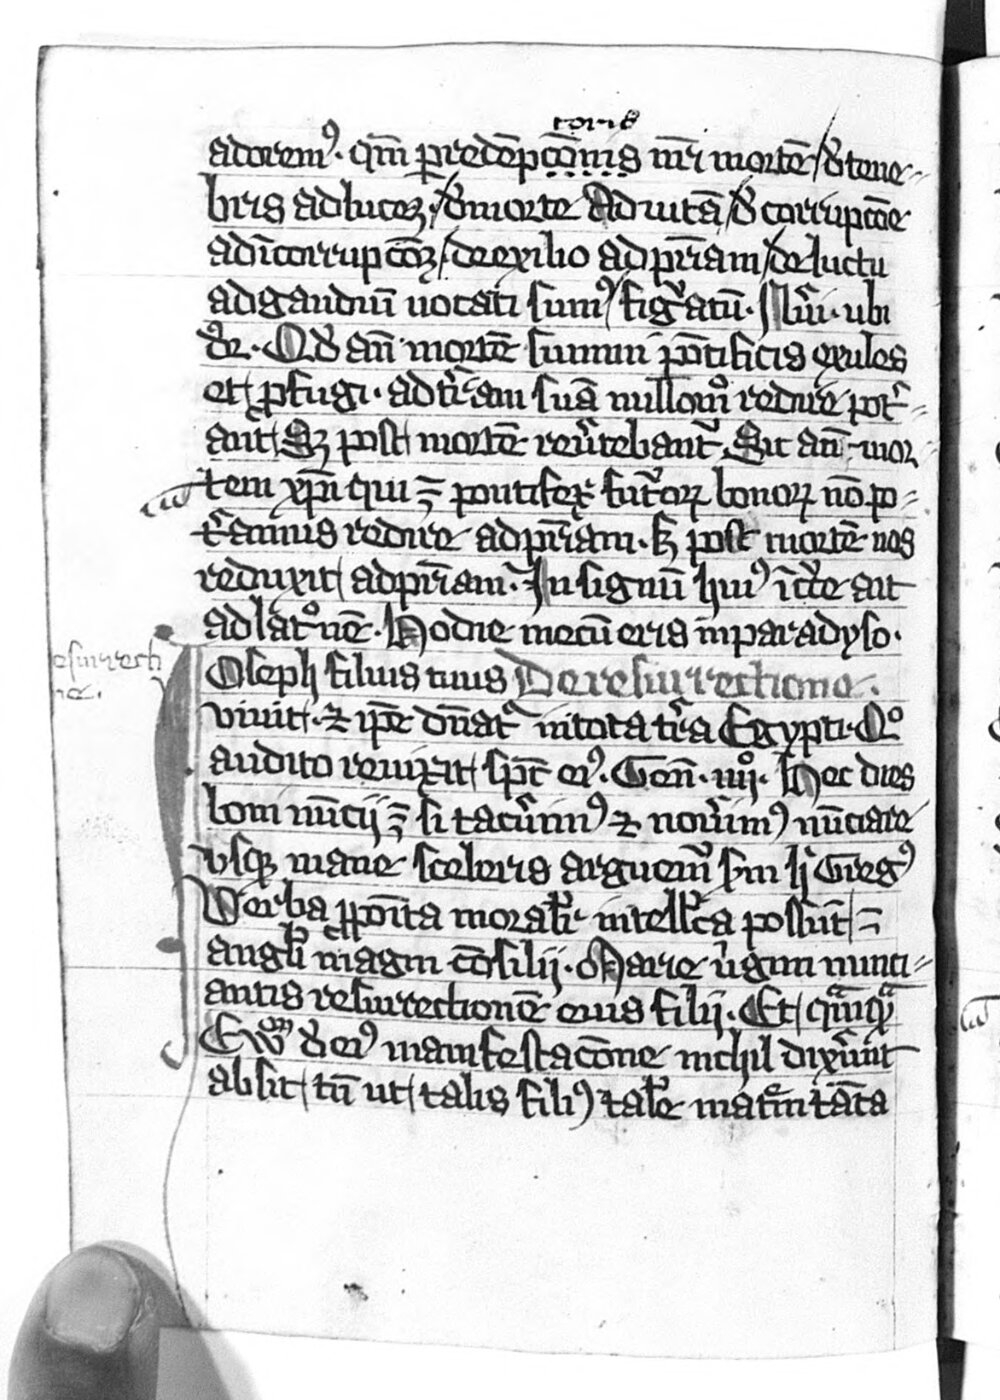 toris
adorem⁹. qm̄ p redēpcōnis nr̄i mortē / d̄ tene-
bris ad lucē / d̄ morte ad uitā / d̄ corrupcōe
ad īcorrupcōꝫ / de exilio ad pr̄iam / de luctu
ad gaudiū uocati sum⁹ / figᵃatū. Nūi. ubi
dr̄. Qd̄ an̄ mortē summi pōtificis exules
et ꝓfugi. ad tr̄am suā nullom° redire pot̄-
ant / Sꝫ post mortē reūtebant᷑. Sic an̄ mor
tem xp̄i qui ē pontifex futoꝝ bonoꝝ nō po-
t̄amus redire ad pr̄iam. sꝫ post mortē nos
reduxit ad pr̄iam. In signū hui⁹ ait
ad lat°nē. Hodie mecū eris in paradyso.
esurrecti
ne.
Oseph filius tuus De resurrectione.
viuit. ⁊ ip̄e dn̄at᷑ in tota tr̄a Egypti. Q°
audito reuixit sp̄c ei⁹. Gen̄. Hec dies
boni nūcij ē si tacūim⁹ ⁊ noūim⁹ nūciare
vsqꝫ mane sceleris arguem᷑ Greg⁹
Verba ꝓpōita moral̄r intell̄ca possūt ē
angl̄i magni cōsilij. Marie ūgini nunci-
antis resurrectionē eius filij. Et qᵃmqᵃ
Ew d̄ ei⁹ manifestacōne nichil dixūit
absit / tn̄ ut talis fili⁹ talē matrē tātā